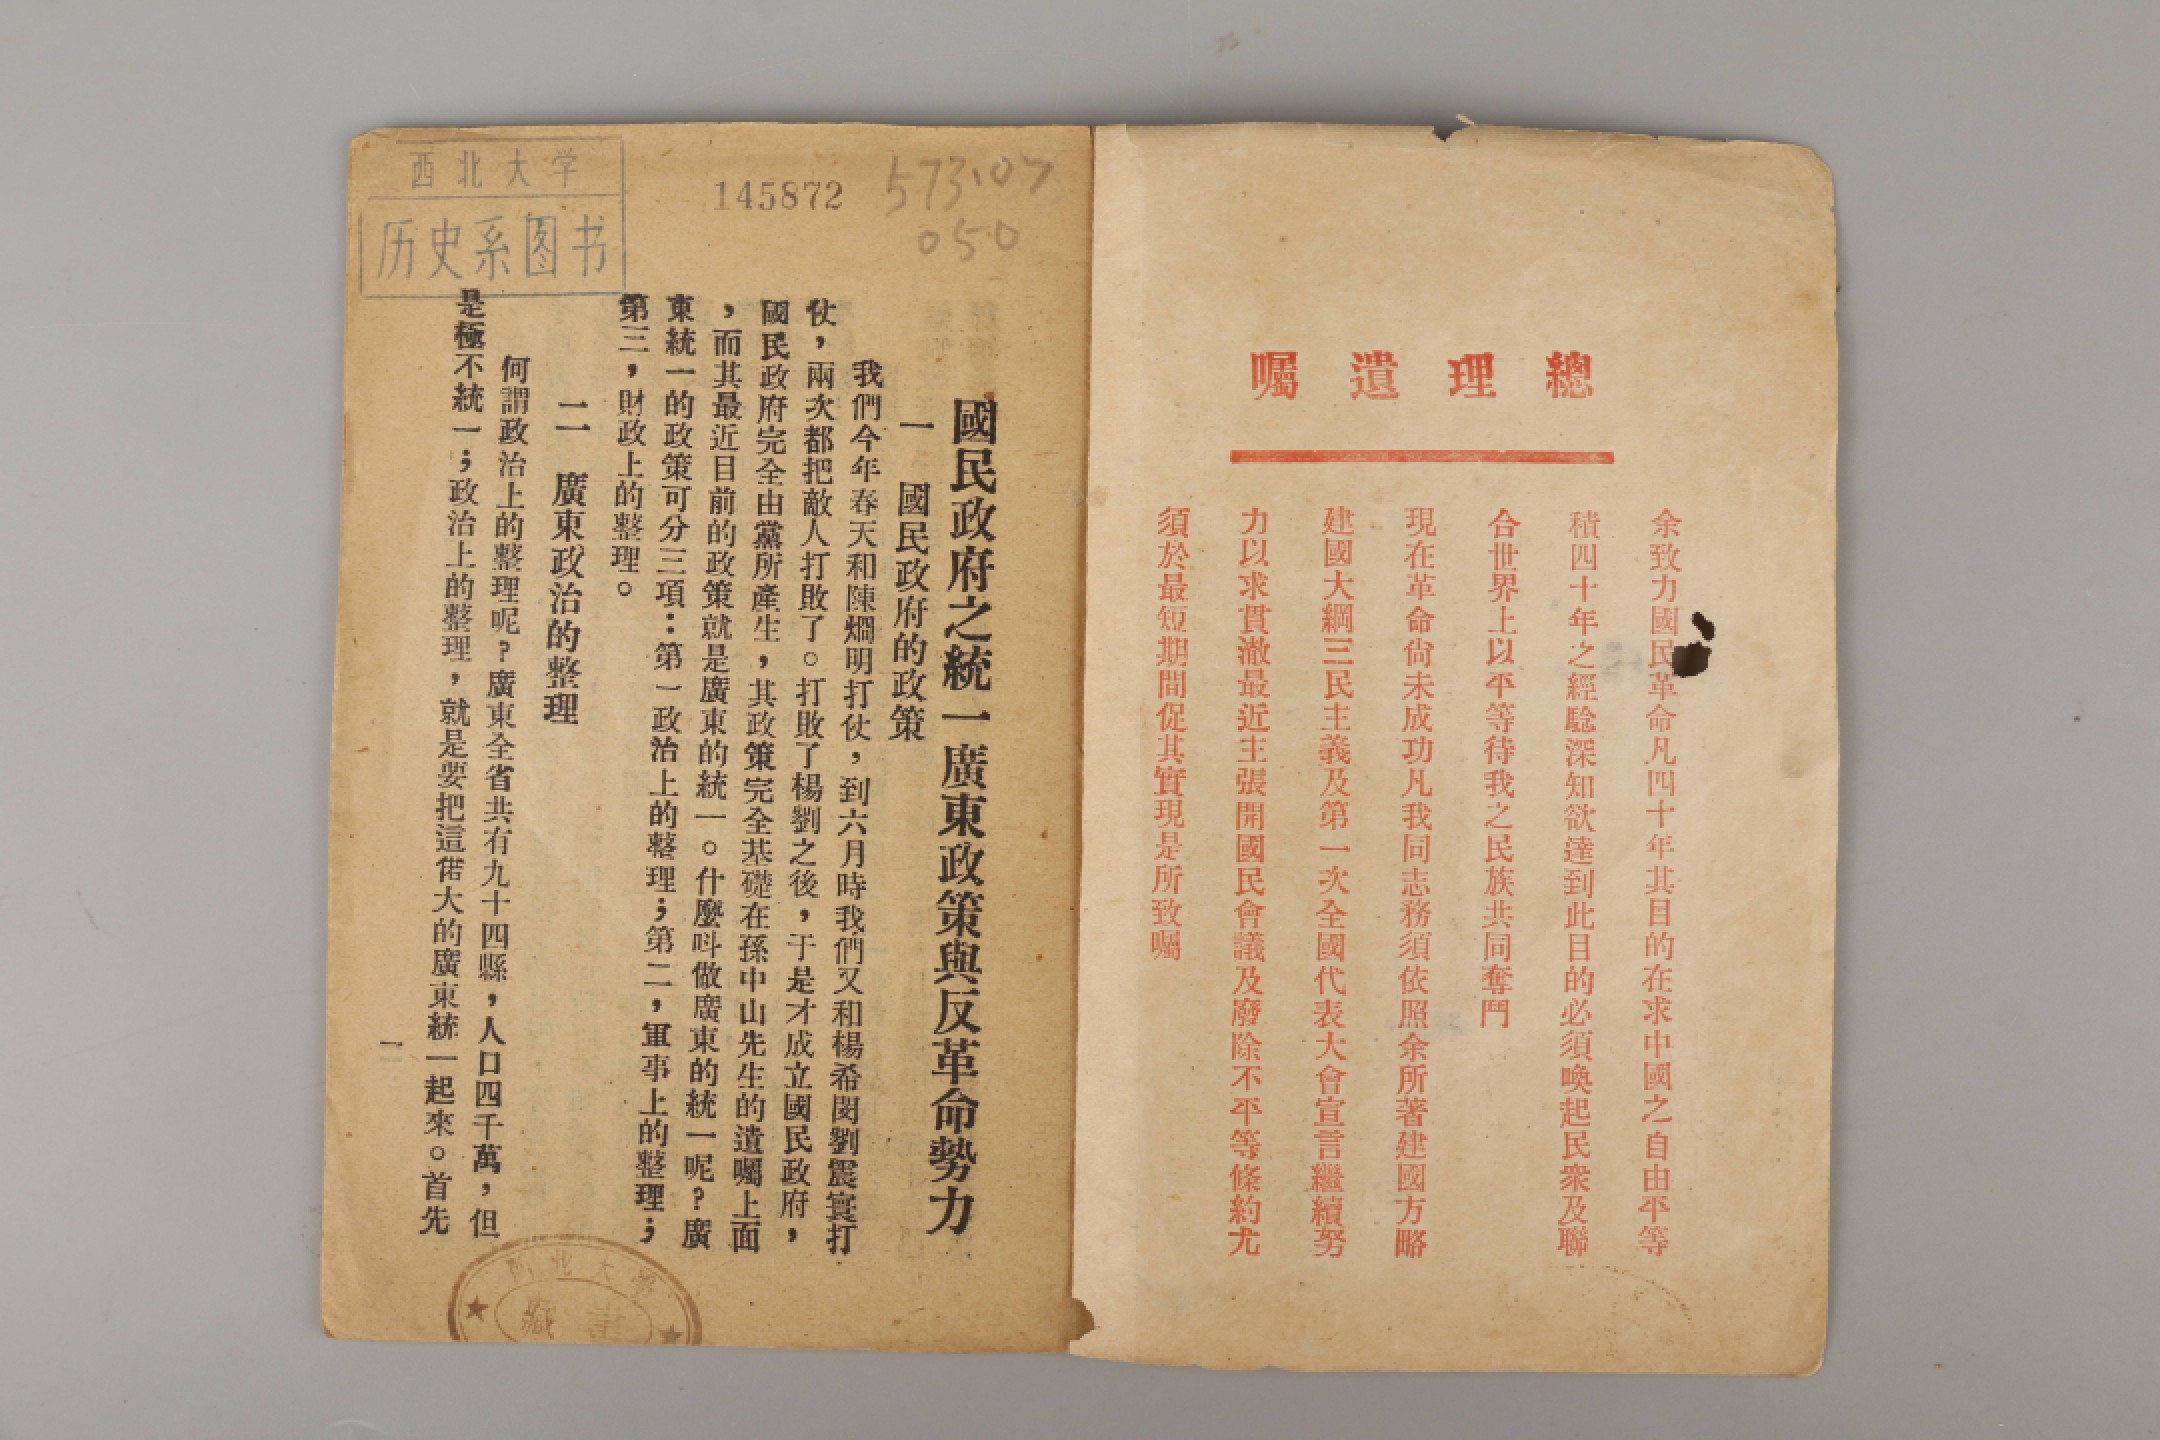 總理遺囑
余致力國民革命凡四十年其目的在求中國之自由平等
積四十年之經驗深知欲達到此目的必須喚起民衆及聯
合世界上以平等待我之民族共同奮鬥
現在革命尙未成功凡我同志務須依照余所著建國方略
建國大綱三民主義及第一次全國代表大會宣言繼續努
力以求貫澈最近主張開國民會議及廢除不平等條約尤
須於最短期間促其實現是所致囑
西北大学
历史系图书
145872
573.07
050
國民政府之統一廣東政策與反革命勢力
一　國民政府的政策
我們今年春天和陳烱明打仗，到六月時我們又和楊希閔劉震寰打
仗，兩次都把敵人打敗了。打敗了楊劉之後，于是才成立國民政府，
國民政府完全由黨所產生，其政策完全基礎在孫中山先生的遺囑上面
，而其最近目前的政策就是廣東的統一。什麼呌做廣東的統一呢？廣
東統一的政策可分三項：第一政治上的整理；第二，軍事上的整理；
第三，財政上的整理。
二　廣東政治的整理
何謂政治上的整理呢？廣東全省共有九十四縣，人口四千萬，但
是極不統一；政治上的整理，就是要把這偌大的廣東統一起來。首先
一
西北大學
藏書